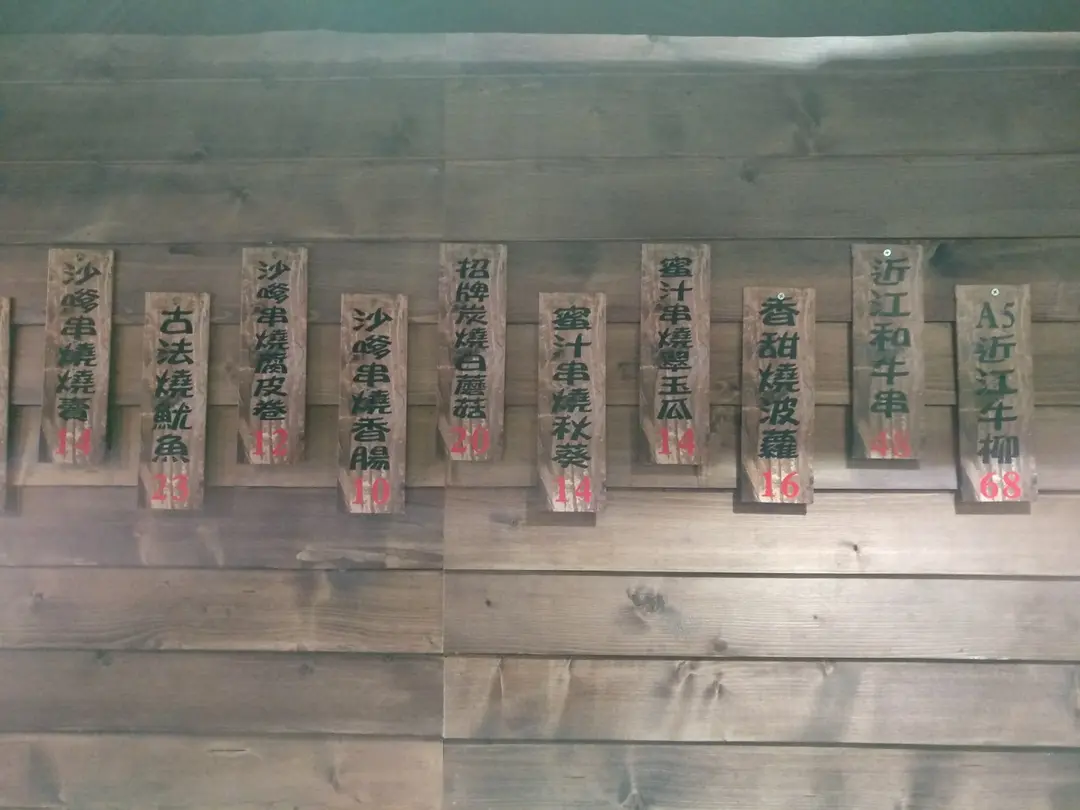 沙嗲串燒燒蕃
14
古法燒魷魚
23
沙嗲串燒腐皮卷
12
沙嗲串燒香腸
10
招牌炭燒白蘑菇
20
蜜汁串燒秋葵
14
蜜汁串燒翠玉瓜
14
香甜燒波蘿
16
近江和牛串
48
A5近江牛柳
68